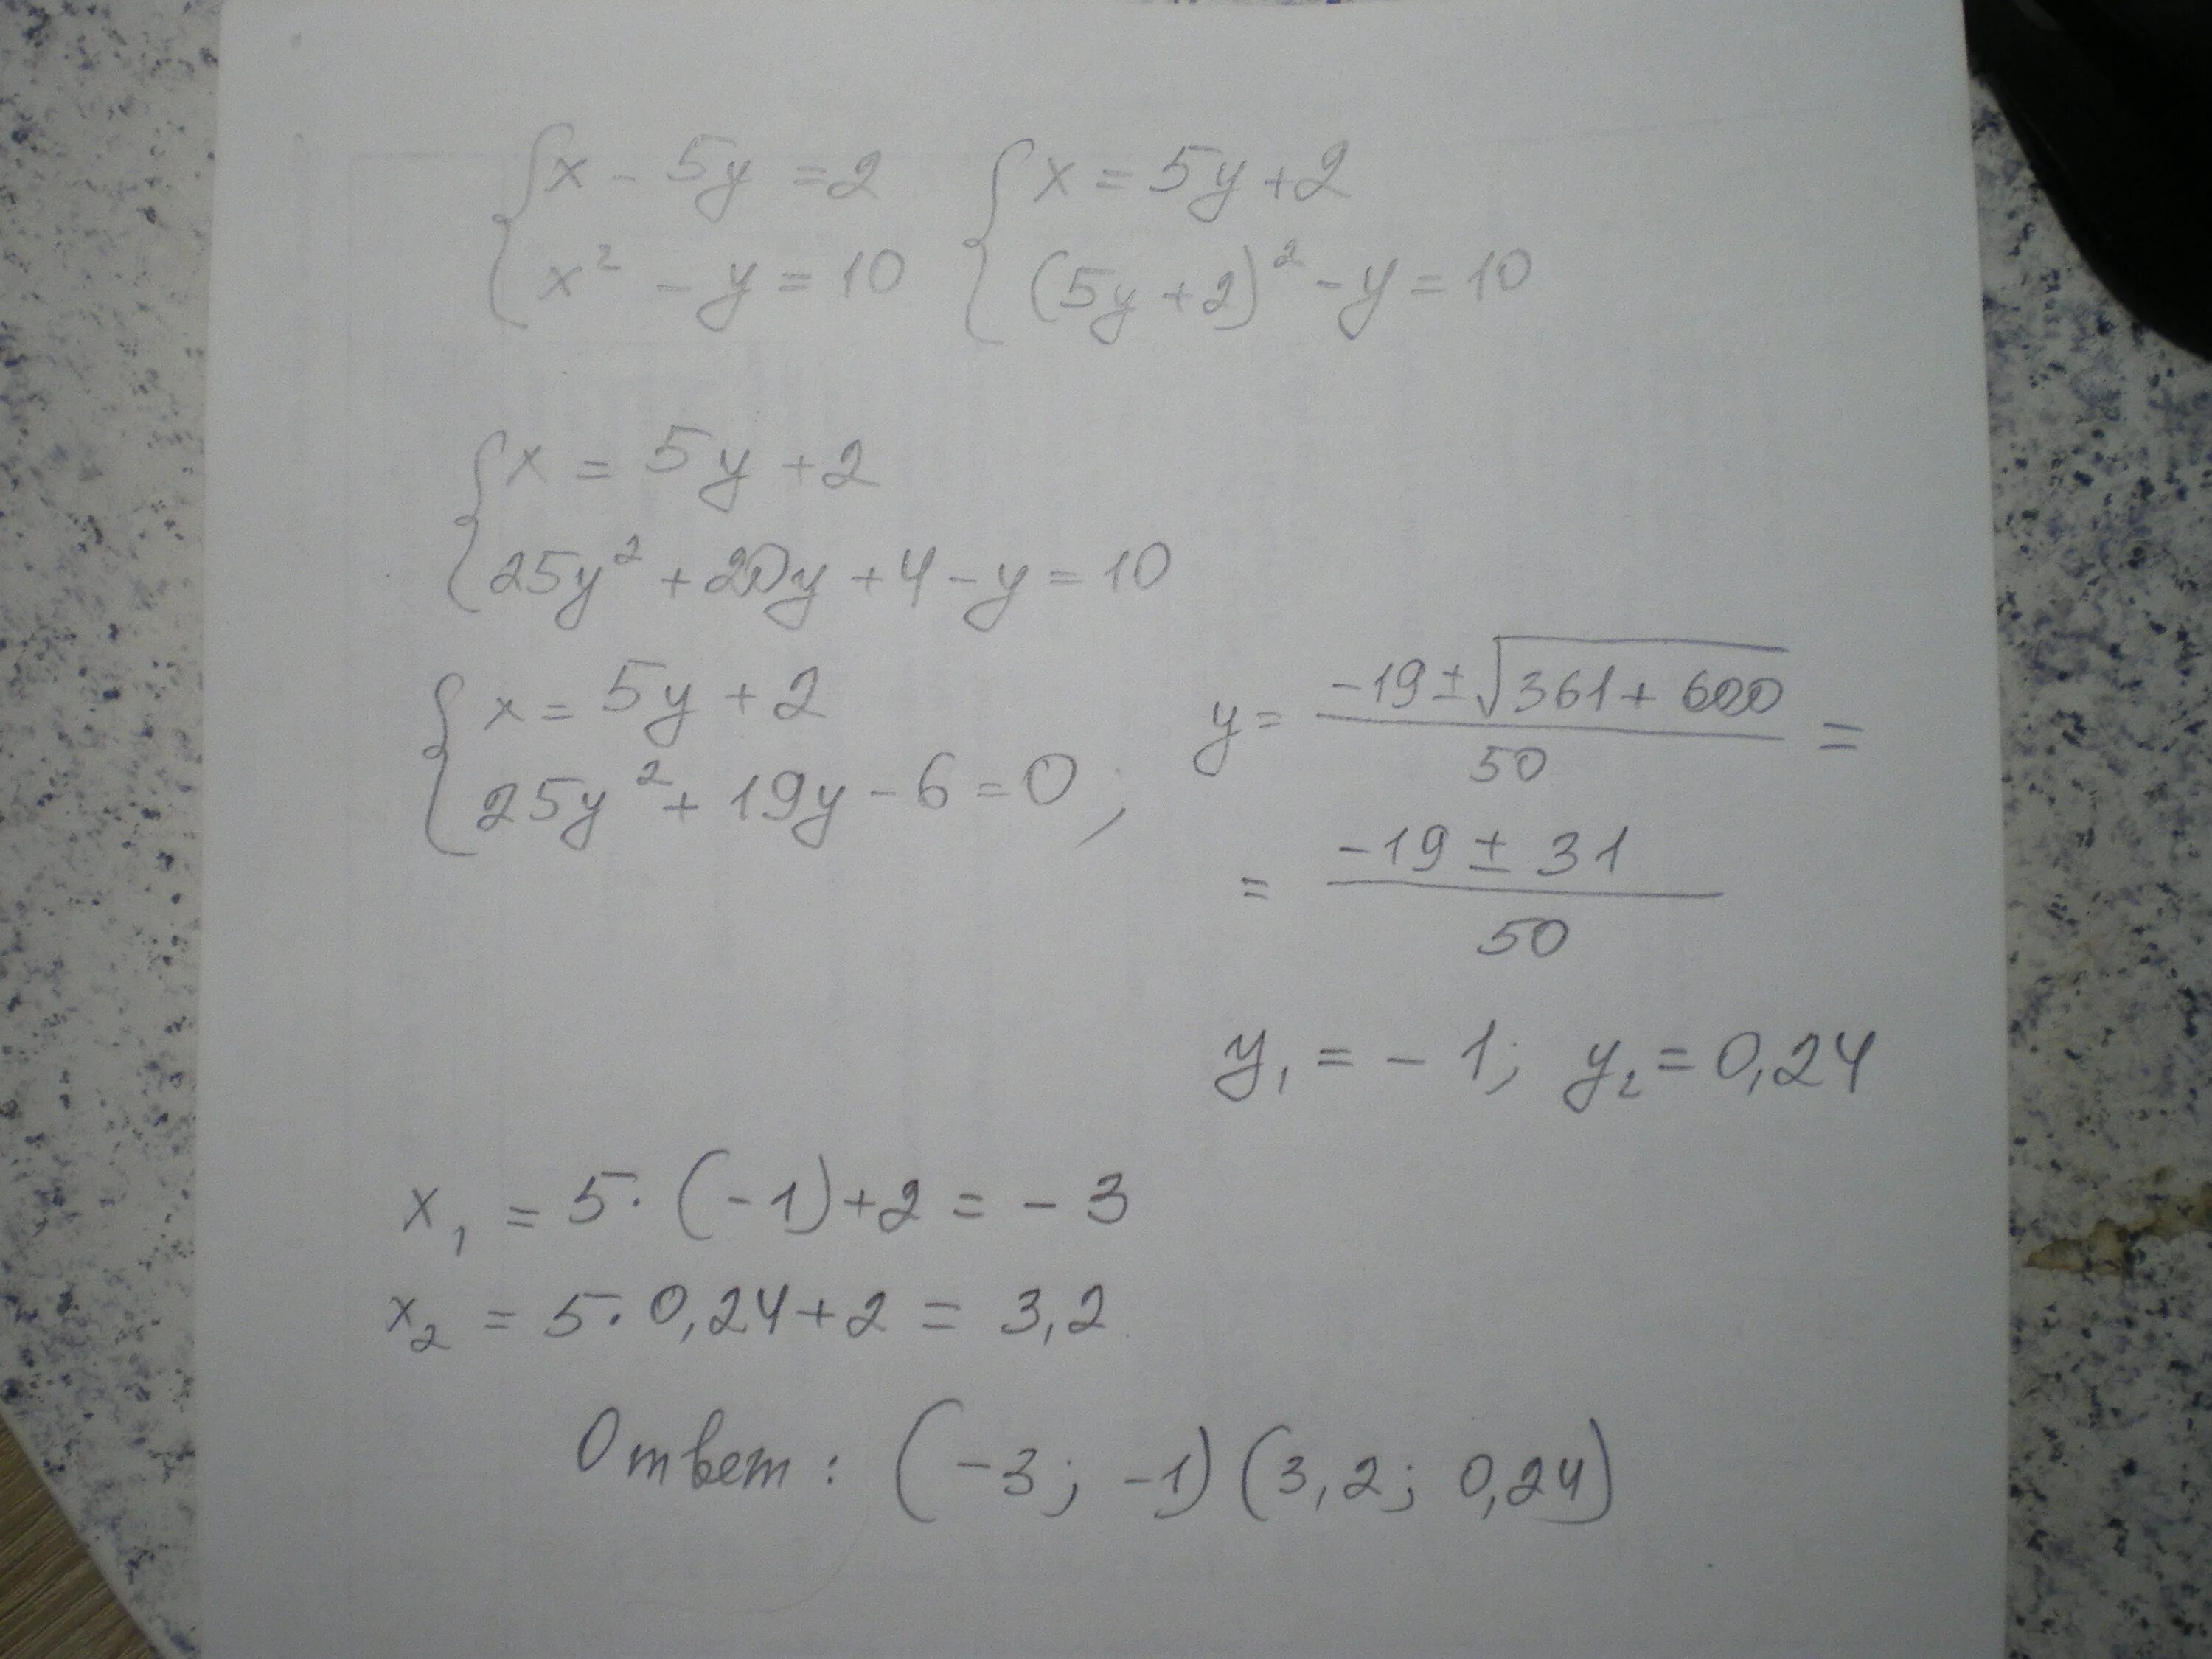 { x - 5y = 2 { x = 5y + 2
x² - y = 10 (5y + 2)² - y = 10
{ x = 5y + 2
25y² + 20y + 4 - y = 10
{ x = 5y + 2
25y² + 19y - 6 = 0 ;
y = (-19 ± √(361 + 600)) / 50 =
= (-19 ± 31) / 50
y₁ = - 1; y₂ = 0,24
x₁ = 5 · (-1) + 2 = - 3
x₂ = 5 · 0,24 + 2 = 3,2
Ответ: (-3; -1) (3,2; 0,24)